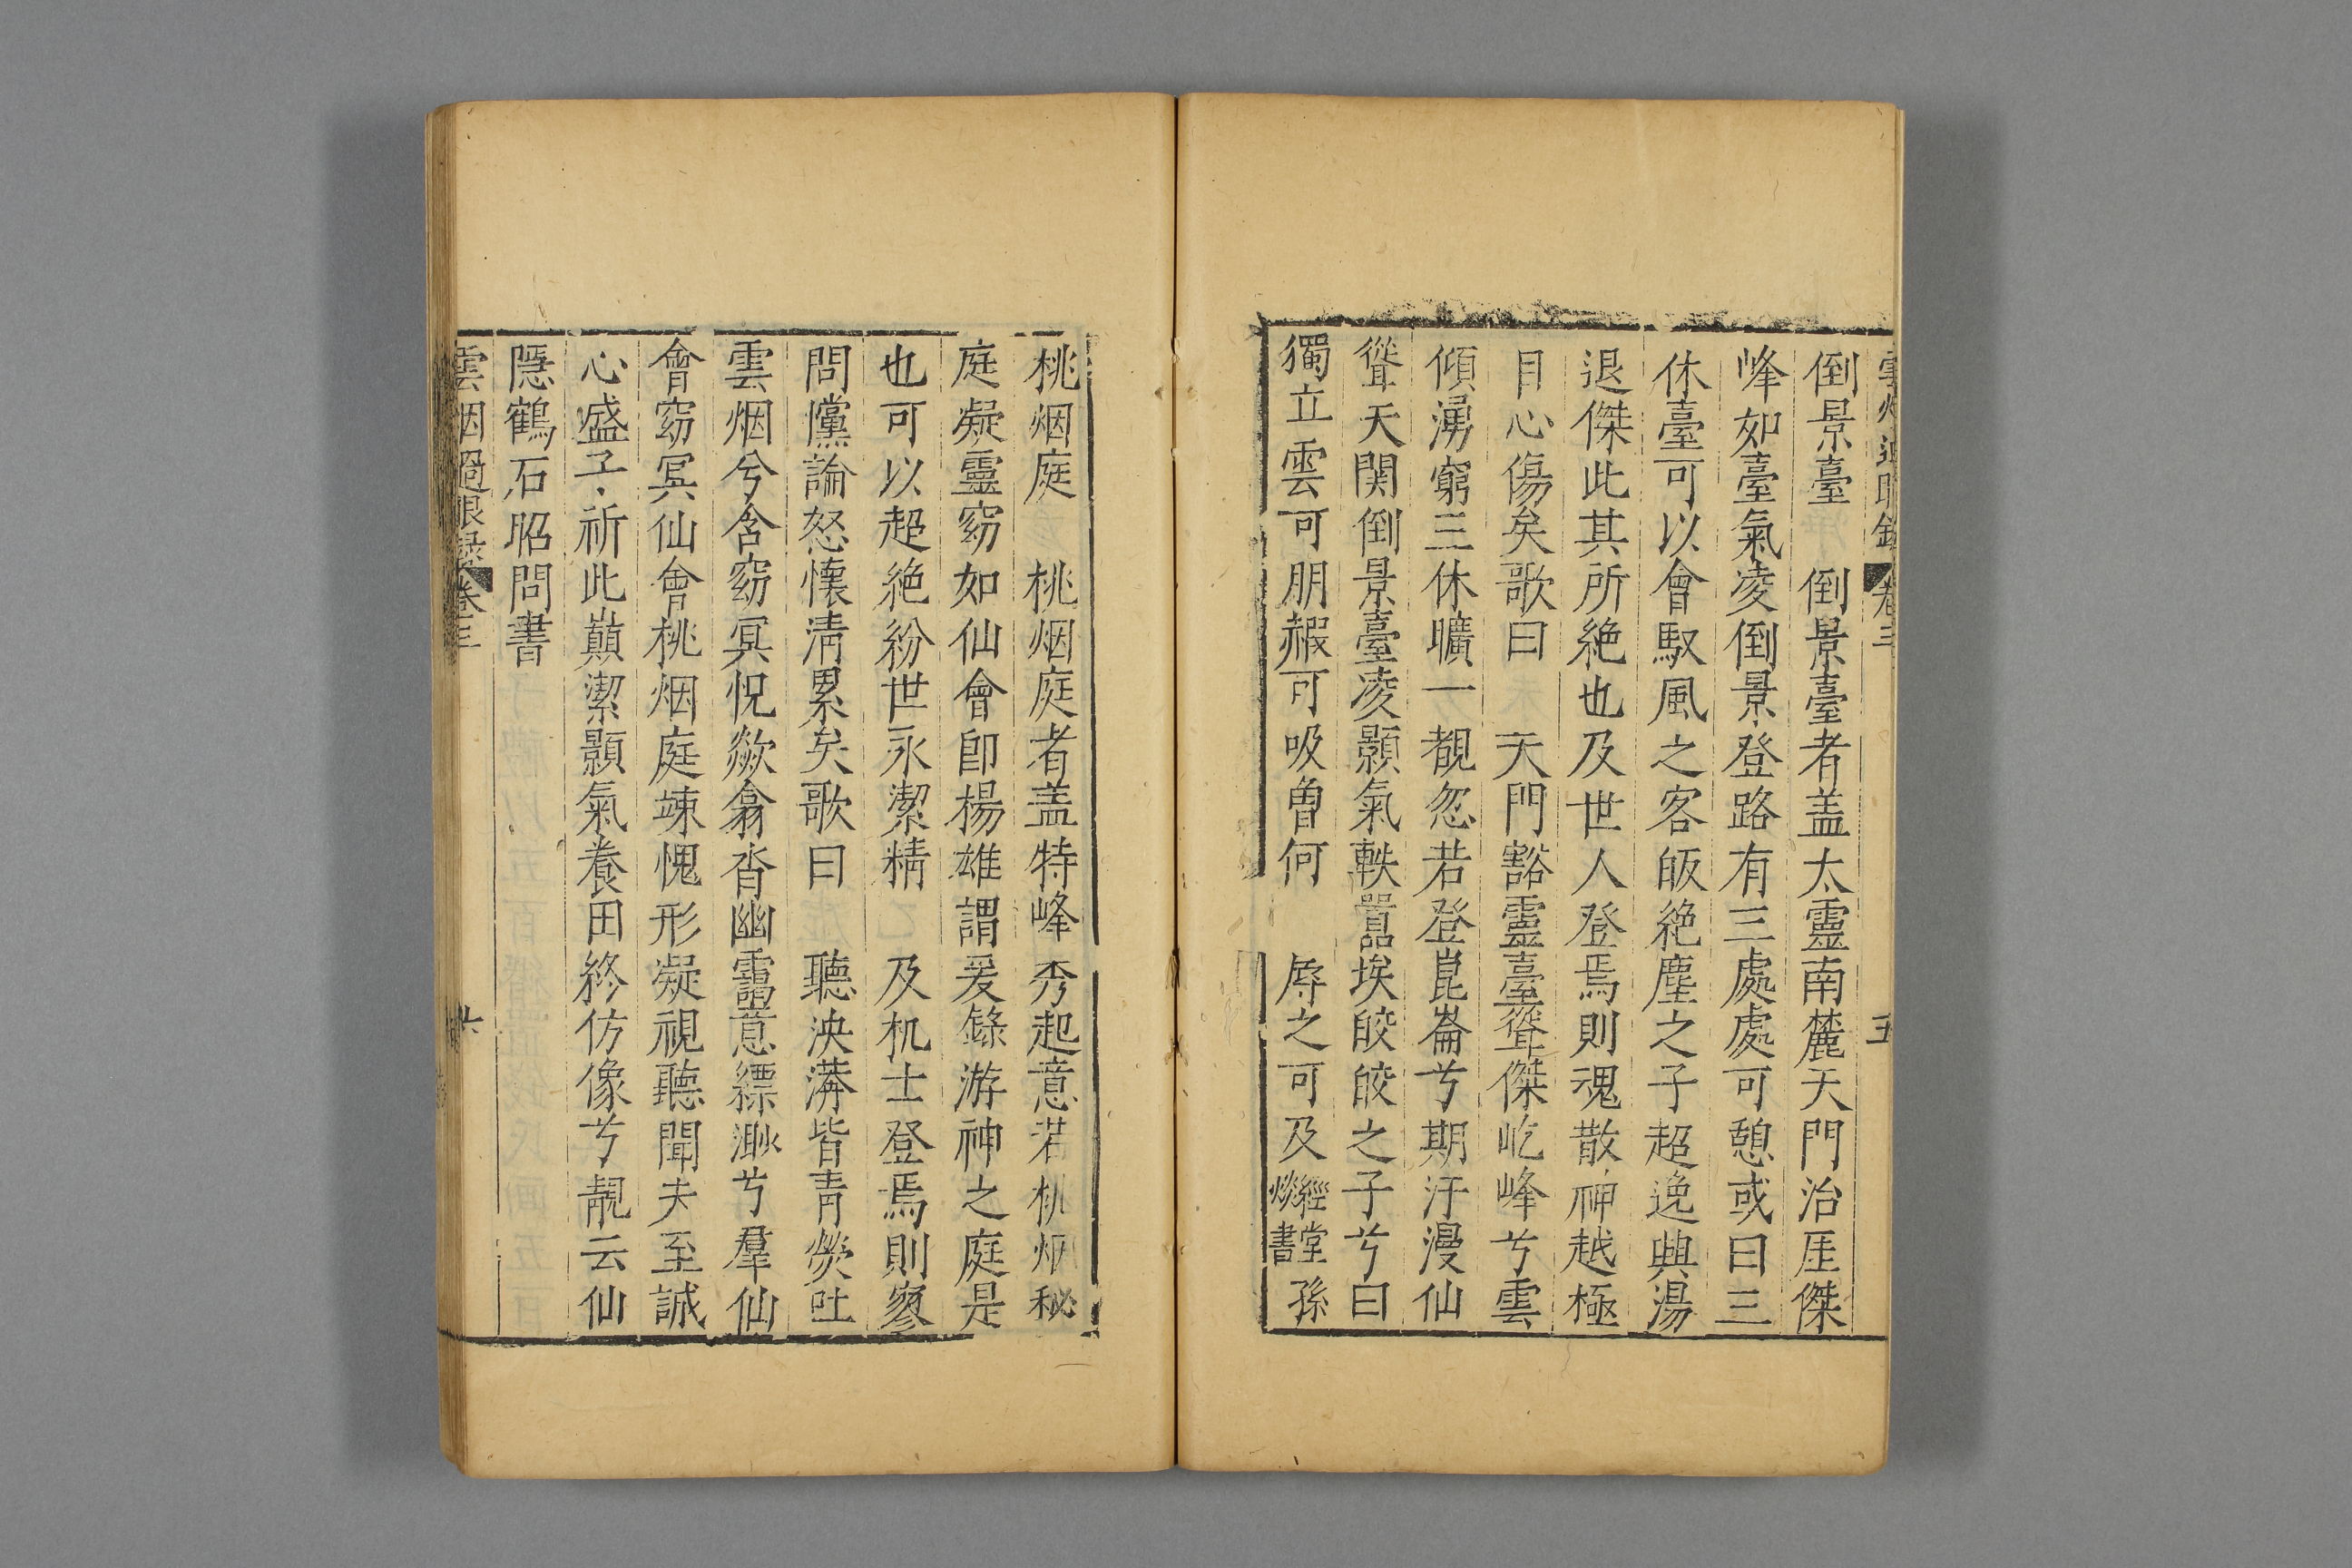 雲烟過眼錄 卷三 五
倒景臺 倒景臺者盖太靈南麓天門治厓傑
峰如臺氣凌倒景登路有三處處可憩或曰三
休臺可以會馭風之客皈絶塵之子超逸輿湯
退傑此其所絶也及世人登焉則魂散神越極
目心傷矣歌曰 天門豁靈臺聳傑屹峰兮雲
傾湧窮三休曠一覩忽若登崑崙兮期汗漫仙
聳天関倒景臺凌顥氣軼囂埃皎皎之子兮曰
獨立雲可朋赮可吸曾何 辱之可及 經堂孫燚書
桃烟庭 桃烟庭者盖特峰秀起意若桃烟秘
庭凝靈窈如仙會卽楊雄謂爰錄游神之庭是
也可以超絶紛世永潔精 及机士登焉則寥
問儻論怒懷清累矣歌曰 聽泱漭皆青熒吐
雲烟兮含窈冥怳歘翕沓幽靄意縹渺兮羣仙
會窈冥仙會桃烟庭竦愧形凝視聽聞夫至誠
心盛子祈此巔潔顥氣養田終仿像兮靚云仙
隱鶴石昭問書
雲烟過眼錄 卷三 六